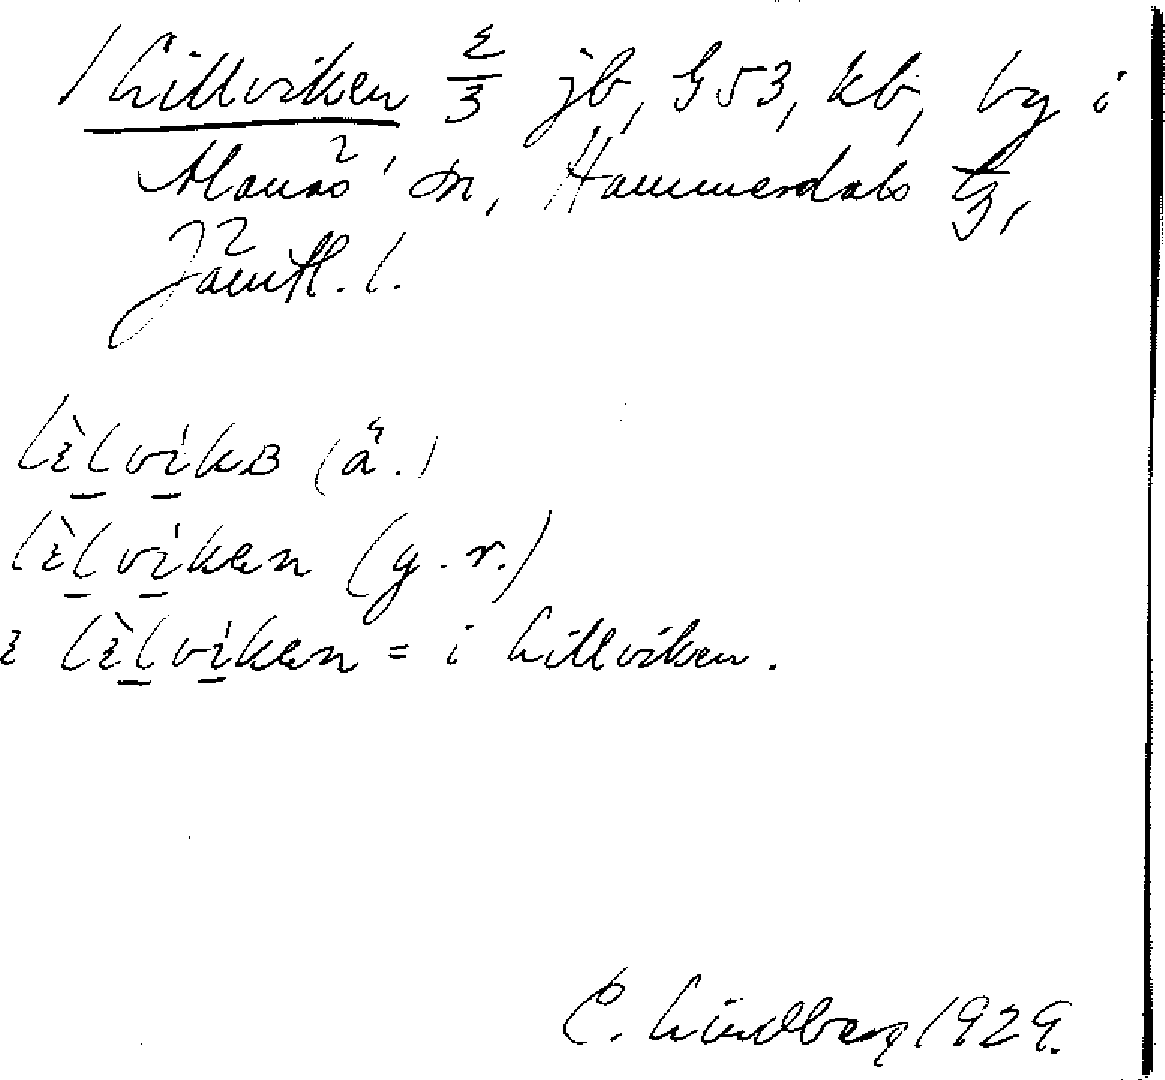 Lillviken 2/3 jb, G53, kb, by i
Alanäs sn, Hammerdals tg,
Jämtl. l.
lὶlvikɐ (ä.)
lὶlviken (y. r.)
ɪ lὶlviken = i Lillviken.
C. Lindberg 1929.